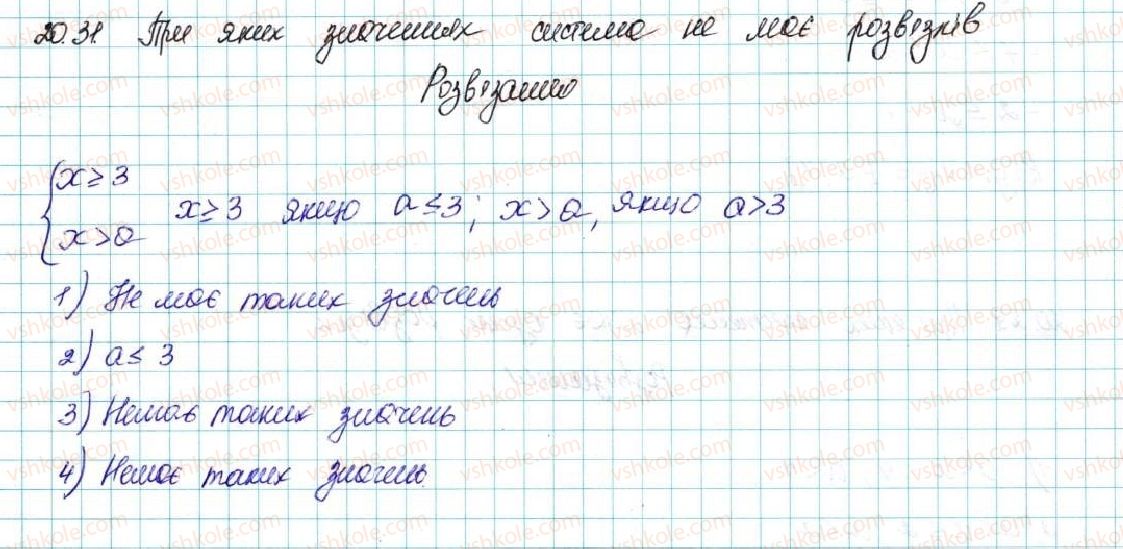 20.31 При яких значеннях система не має розв'язків
Розв'язання
{x ≥ 3
x > a
x ≥ 3 якщо a ≤ 3; x > a, якщо a > 3
1) Не має таких значень
2) a ≤ 3
3) Немає таких значень
4) Немає таких значень